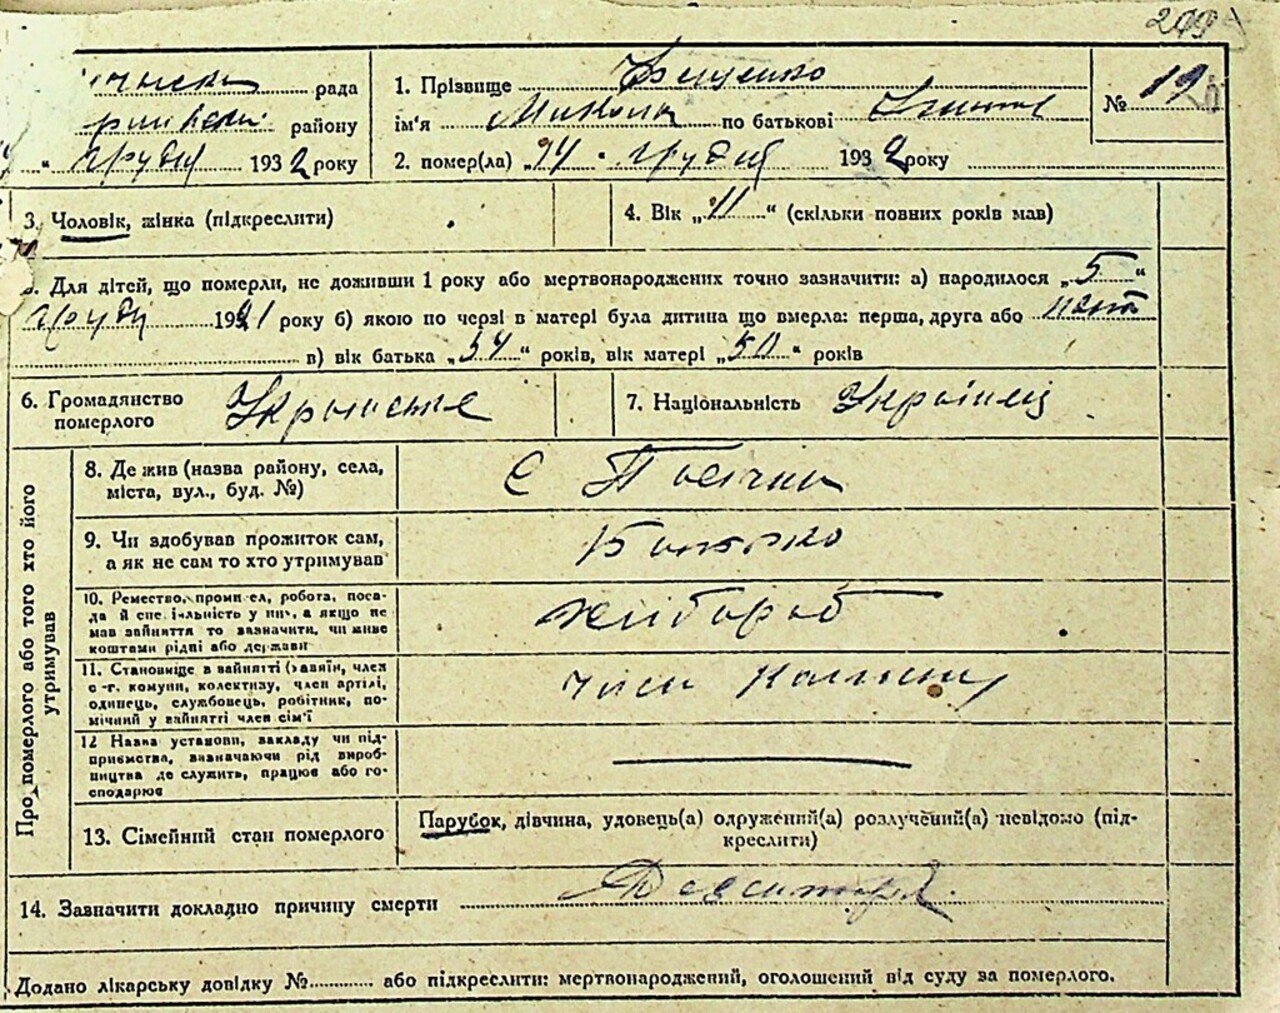 209
рада
району
" Грудня 1932 року
1. Прізвище Ященко
ім'я Микола по батькові
2. помер(ла) „14 " грудня 1932 року
№ 19
3. Чоловік, жінка (підкреслити)
4. Вік „11" (скільки повних років мав)
5. Для дітей, що померли, не доживши 1 року або мертвонароджених точно зазначити: а) народилося „5"
Грудня 1921 року б) якою по черзі в матері була дитина що вмерла: перша, друга або
в) вік батька „54" років, вік матері „50" років
6. Громадянство
померлого
Українське
7. Національність Українец
Про померлого або того хто його
утримував
8. Де жив (назва району, села,
міста, вул., буд. №)
С Пасічна
9. Чи здобував прожиток сам,
а як не сам то хто утримував
Батько
10. Ремество, промисел, робота, поса-
да й спеціяльність у ній, а якщо не
мав зайняття то зазначити, чи живе
коштами рідні або держави
хлібороб
11. Становище в зайнятті (хазяїн, член
с-г. комуни, колективу, член артілі,
одинець, службовець, робітник, по-
мічний у зайнятті член сім'ї
член
12 Назва установи, закладу чи під-
приємства, визначаючи рід вироб-
ництва де служить, працює або го-
сподарює
13. Сімейний стан померлого
Парубок, дівчина, удовець(а) одружений(а) розлучений(а) невідомо (під-
креслити)
14. Зазначити докладно причину смерти
Додано лікарську довідку №............ або підкреслити: мертвонароджений, оголошений від суду за померлого.